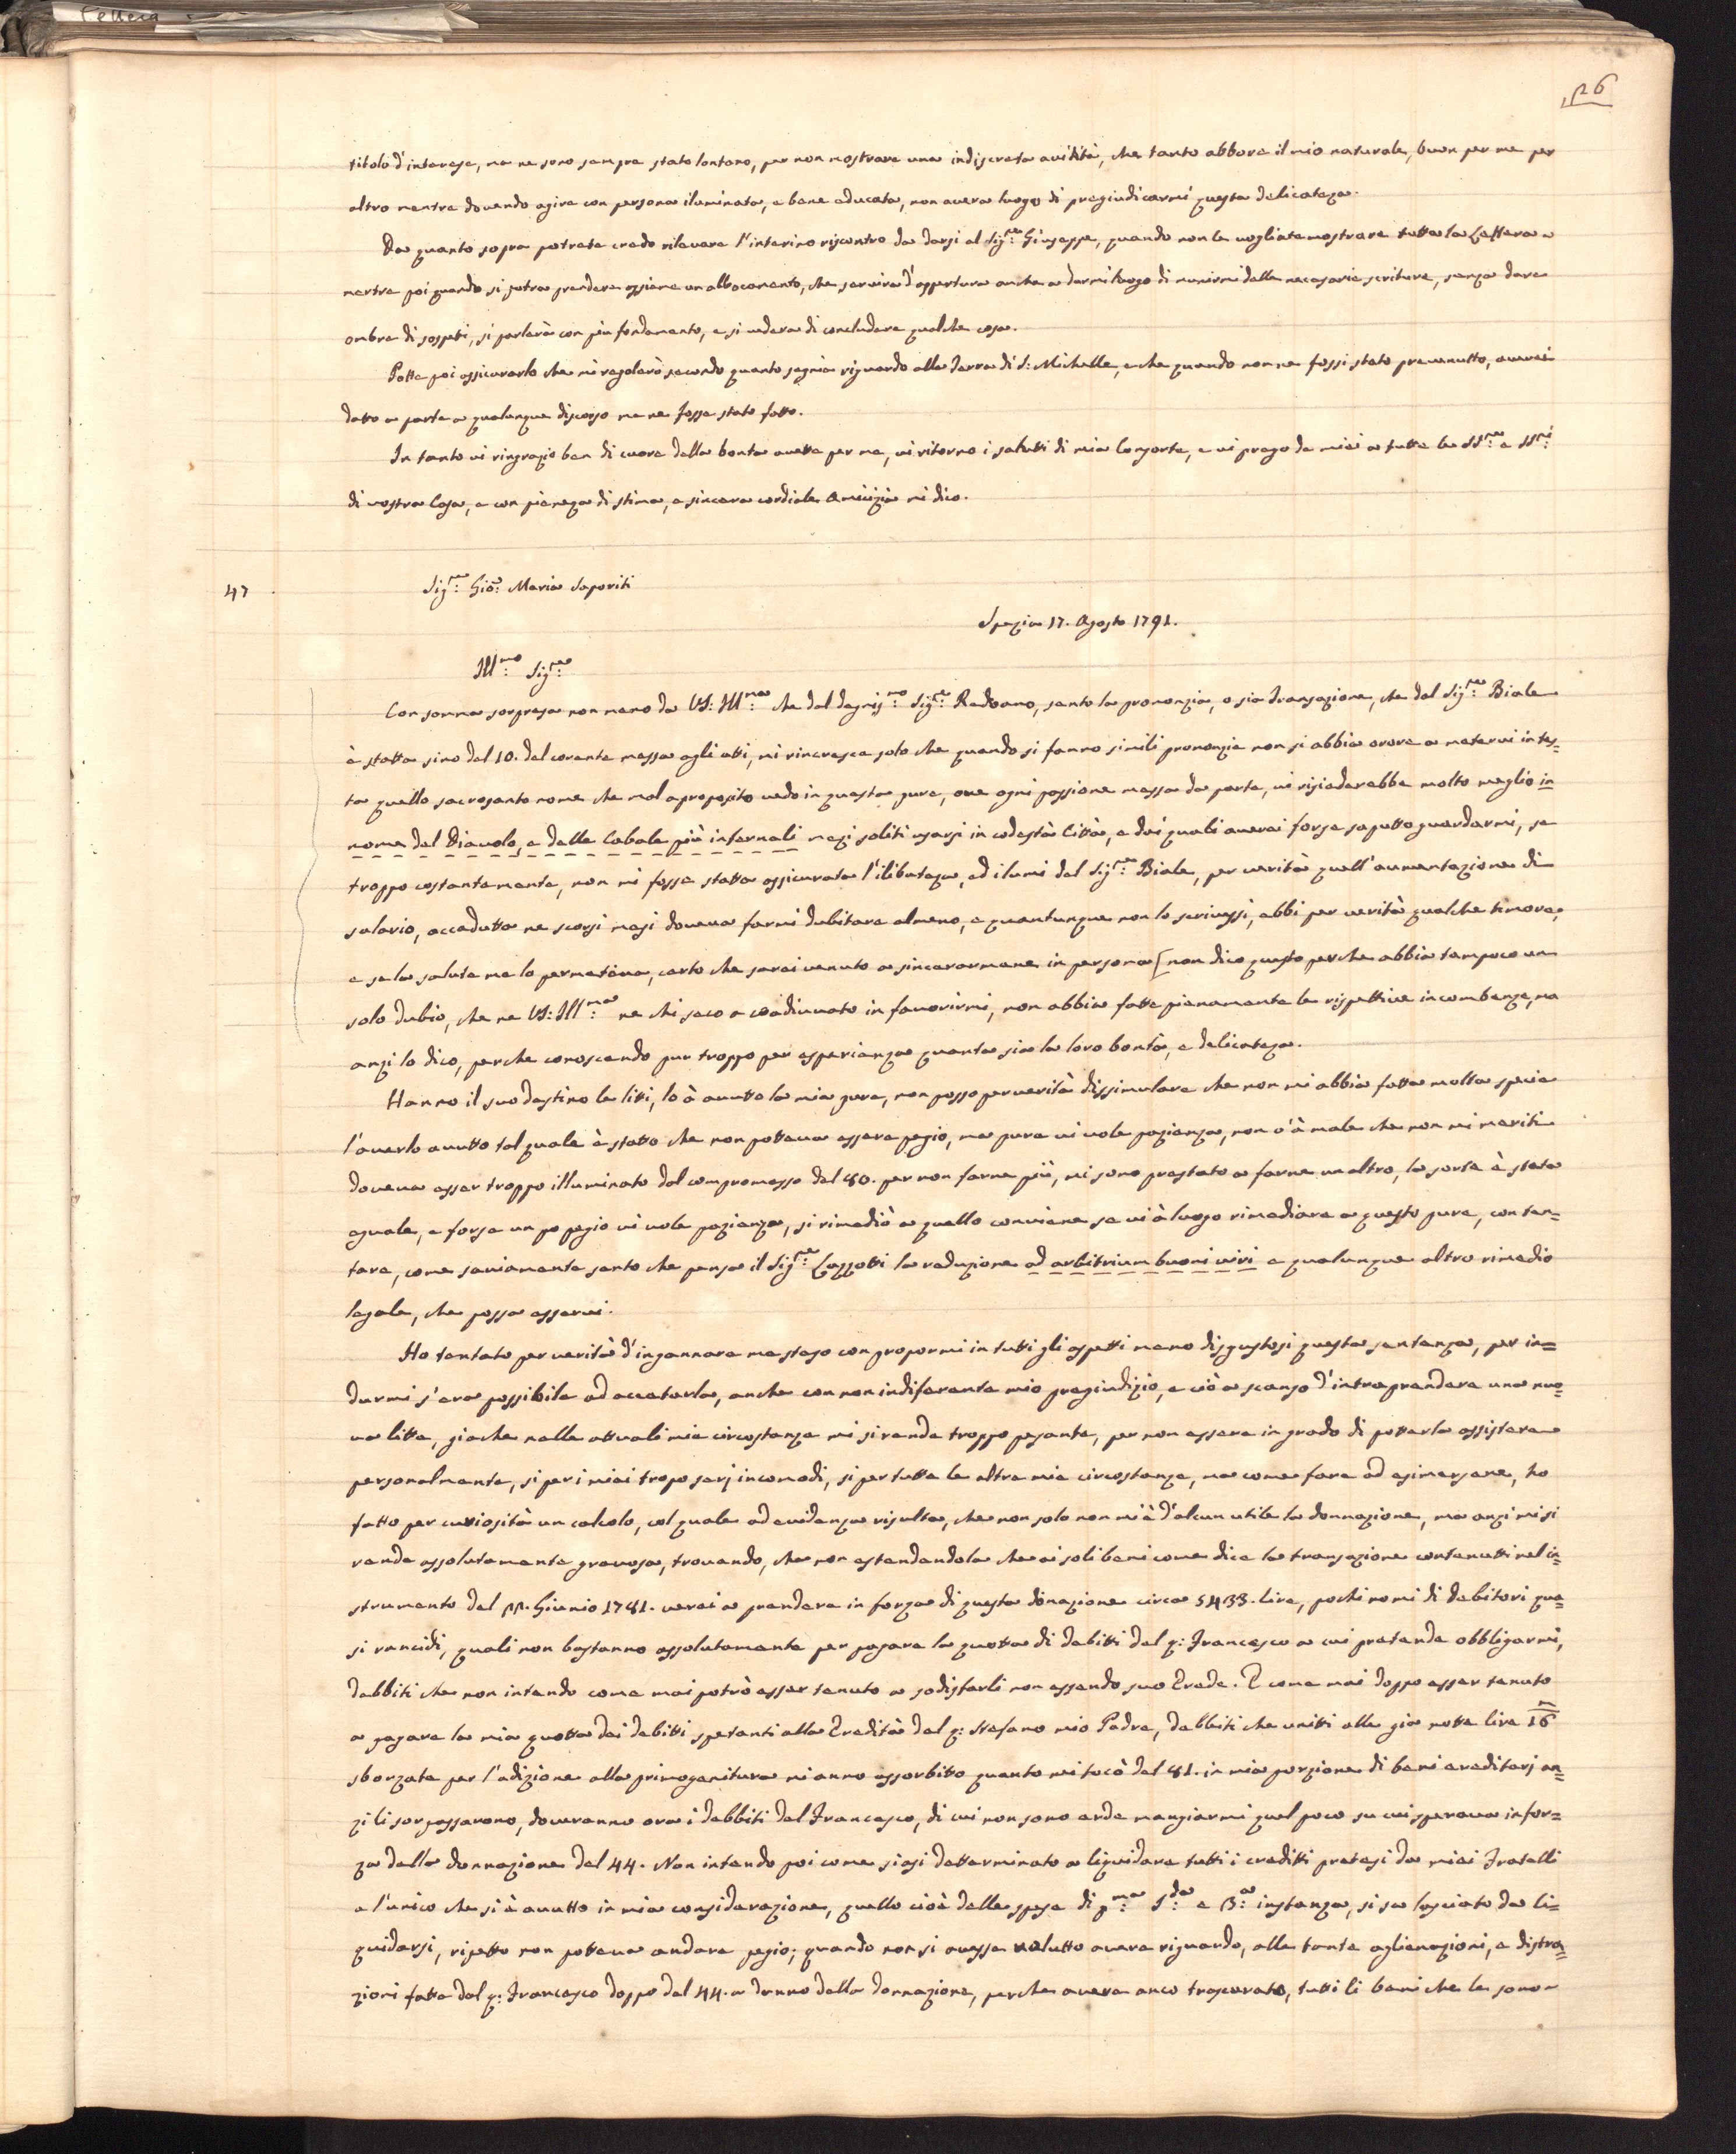 26
titolo d'interesse, ma ne sono sempre stato lontano, per non mostrare una indiscreta avidità, che tanto abbore il mio naturale, buon per me per
altro mentre dovendo agire con persona iluminata, e bene educata, non avera luogo di pregiudicarmi questa delicateza.
Da quanto sopra potrete credo rilevare l'interino riscontro da darsi al Sig:re Giuseppe, quando non le vogliate mostrare tutta la Lettera e
mentre poi quando si potra prendere assieme un abbocamento, che servira d'appertura anche a darmi luogo di munirmi delle necesarie scriture, senza dare
ombra di sospeti, si parlerà con più fondamento, e si vedera di concludere qualche cosa.
Potte poi assicurarlo che mi regolerò secondo quanto segnia riguardo alla Terra di S: Michelle, e che quando non ne fossi stato prevenutto, averei
datto a parte a qualunque discorso me ne fosse stato fatto.
In tanto vi ringrazio ben di cuore della bonta avetta per me, vi ritorno i salutti di mia Consorte, e vi prego de miei a tutte le SS:re e SS:ri
di vostra Casa, e con pieneza di stima, e sincera cordiale Amicizia mi dico.
47
Sig:re Gio: Maria Saporiti
Spezia 17. Agosto 1791.
Ill:mo Sig:re
Con somma sorpresa non meno da VS: Ill:ma che dal degnis:mo Sig:re Redoano, sento la prononzia, o sia Transazione, che dal Sig:re Biale
è statta sino dal 10. del corente messa agli atti, mi rincresce solo che quando si fanno simili prononzie non si abbia orore a metervi in tes=
ta quello sacrosanto nome che mal aproposito vedo in questa pure, ove ogni passione messa da parte, vi risiederebbe molto meglio in
nome del Diavolo, e delle Cabale più infernali mezi soliti usarsi in codestà Città, e dai quali averei forse saputto guardarmi, se
troppo costantemente, non mi fosse statta assicurata l'ilibateza, ed i lumi del Sig:re Biale, per verità quell'aumentazione di
salario, accadutta ne scorsi mesi doveva farmi dubitare almeno, e quantunque non lo scrivessi, ebbi per verità qualche timore,
e se la salute me lo permeteva, certo che sarei venuto a sincerarmene in persona [non dico questo perche abbia tampoco un
solo dubio, che ne VS: Ill:ma ne chi seco a coadiuvato in favorirmi, non abbia fatte pienamente le rispettive incombenze, ma
anzi lo dico, perche conoscendo pur troppo per esperienza quanta sia la loro bontà, e delicateza.
Hanno il suo destino le liti, lo à avutto la mia pure, non posso per verità dissimulare che non mi abbia fatta molta specie
l'averlo avutto tal quale è statto che non potteva essere pegio, ma pure vi vole pazienza, non v'à male che non mi meriti
doveva esser troppo illuminato dal compromesso del 80. per non farne più, mi sono prestato a farne un altro, la sorte è stata
eguale, e forse un po pegio vi vole pazienza, si rimediò a quello conviene se vi à luogo rimediare a questo pure, con ten=
tare, come saviamente sento che pensa il Sig:re Cazzotti la reduzione ad arbitrium buoni viri e qualunque altro rimedio
legale, che possa esservi.
Ho tentato per verità d'ingannare me steso con propormi in tutti gli aspetti meno disgustosi questa sentenza, per in=
durmi s'era possibile ad accetarla, anche con non indiferente mio pregiudizio, e ciò a scanso d'intraprendere una nuo=
va litte, giache nelle attuali mie circostanze mi si rende troppo pesante, per non essere in grado di potterla assistere
personalmente, si per i miei tropo serj incomodi, si per tutte le altre mie circostanze, ma come fare ad esimersene, ho
fatto per curiosità un calcolo, col quale ad evidenza risulta, che non solo non mi è d'alcun utile la donnazione, ma anzi mi si
rende assolutamente gravosa, trovando, che non estendendola che ai soli beni come dice la transazione contenutti nel in=
strumento del 22. Giunio 1781. verei a prendere in forza di questa donazione circa 5433. lire, pochi nomi di debitori qua=
si rancidi, quali non bastanno assolutamente per pagare la quotta di debitti del q: Francesco a cui pretende obbligarmi,
debbiti che non intendo come mai potrò esser tenuto a sodisfarli non essendo suo Erede. E come mai doppo esser tenuto
a pagare la mia quotta dei debitti spetanti alla Eredità del q: Stefano mio Padre, debbiti che unitti alle già notte lire 16
sborzate per l'adizione alla primogenitura mi anno assorbitto quanto mi tocò del 81. in mia porzione di beni ereditarj an=
zi li sorpassarono, doveranno ora i debbiti del Francesco, di cui non sono erede mangiarmi quel poco su cui sperava in for=
za della donnazione del 44. Non intendo poi come siasi detterminato a liquidare tutti i creditti pretesi da miei Fratelli
e l'unico che si è avutto in mia considerazione, quello cioè delle spese di p:ma S:da e 3:a instanza, si sia lasciato da li=
quidarsi, ripetto non potteva andare pegio; quando non si avesse volutto avere riguardo, alle tante aglienazioni, e distra=
zioni fatte dal q: Francesco doppo del 44. a danno della donnazione, perche avere anco trascurato, tutti li beni che le sono